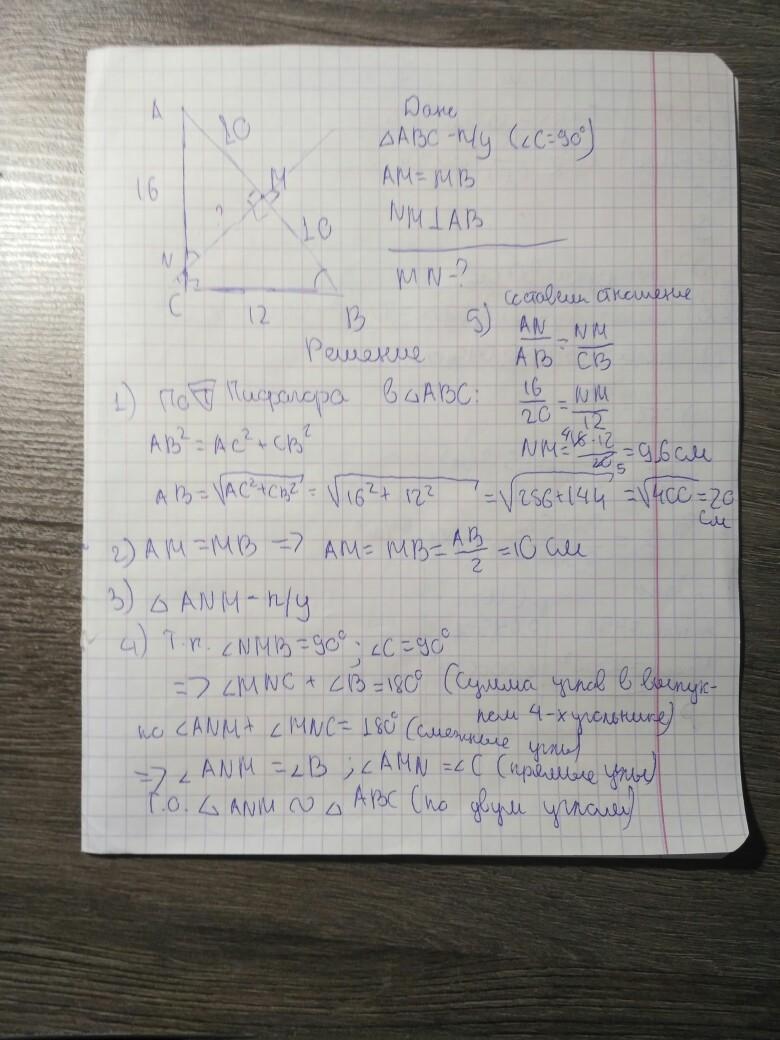 A
10
M
16
?
10
N
C
12
B
Дано
△ABC - п/у (∠C=90°)
AM = MB
NM⊥AB
MN-?
Решение
1) По T Пифагора в △ABC:
AB² = AC² + CB²
AB = √AC²+CB² = √16² + 12² = √256+144 = √400 = 20 см
2) AM = MB => AM = MB = AB/2 = 10 см
3) △ANM - п/у
4) Т.к. ∠NMB = 90°; ∠C = 90°
=> ∠MNC + ∠B = 180° (сумма углов в выпук-
лом 4-х угольнике)
но ∠ANM + ∠MNC = 180° (смежные углы)
=> ∠ANM = ∠B ; ∠AMN = ∠C (прямые углы)
Т.О. △ANM ∾ △ABC (по двум углам)
5) составим отношение
AN/AB = NM/CB
16/20 = NM/12
NM = 16·12/20 = 9,6 см
4
5